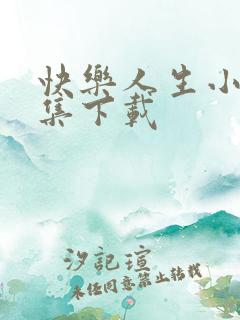 快樂人生小
集下載
汐記瑄
未经同意禁止转载